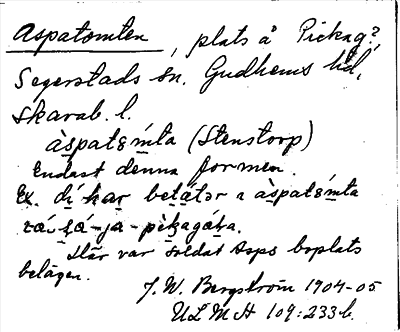 Aspatomten, plats å Pickag?,
Segerstads sn. Gudhems hd,
Skarab. l.
àspatꞷm̀ta (Stenstorp)
Endast denna formen.
Ex. dí har betátər a àspatꞷm̀ta
Här var soldat Asps boplats
belägen.
J. W. Bergström 1904-05
ULMA 109:233b.